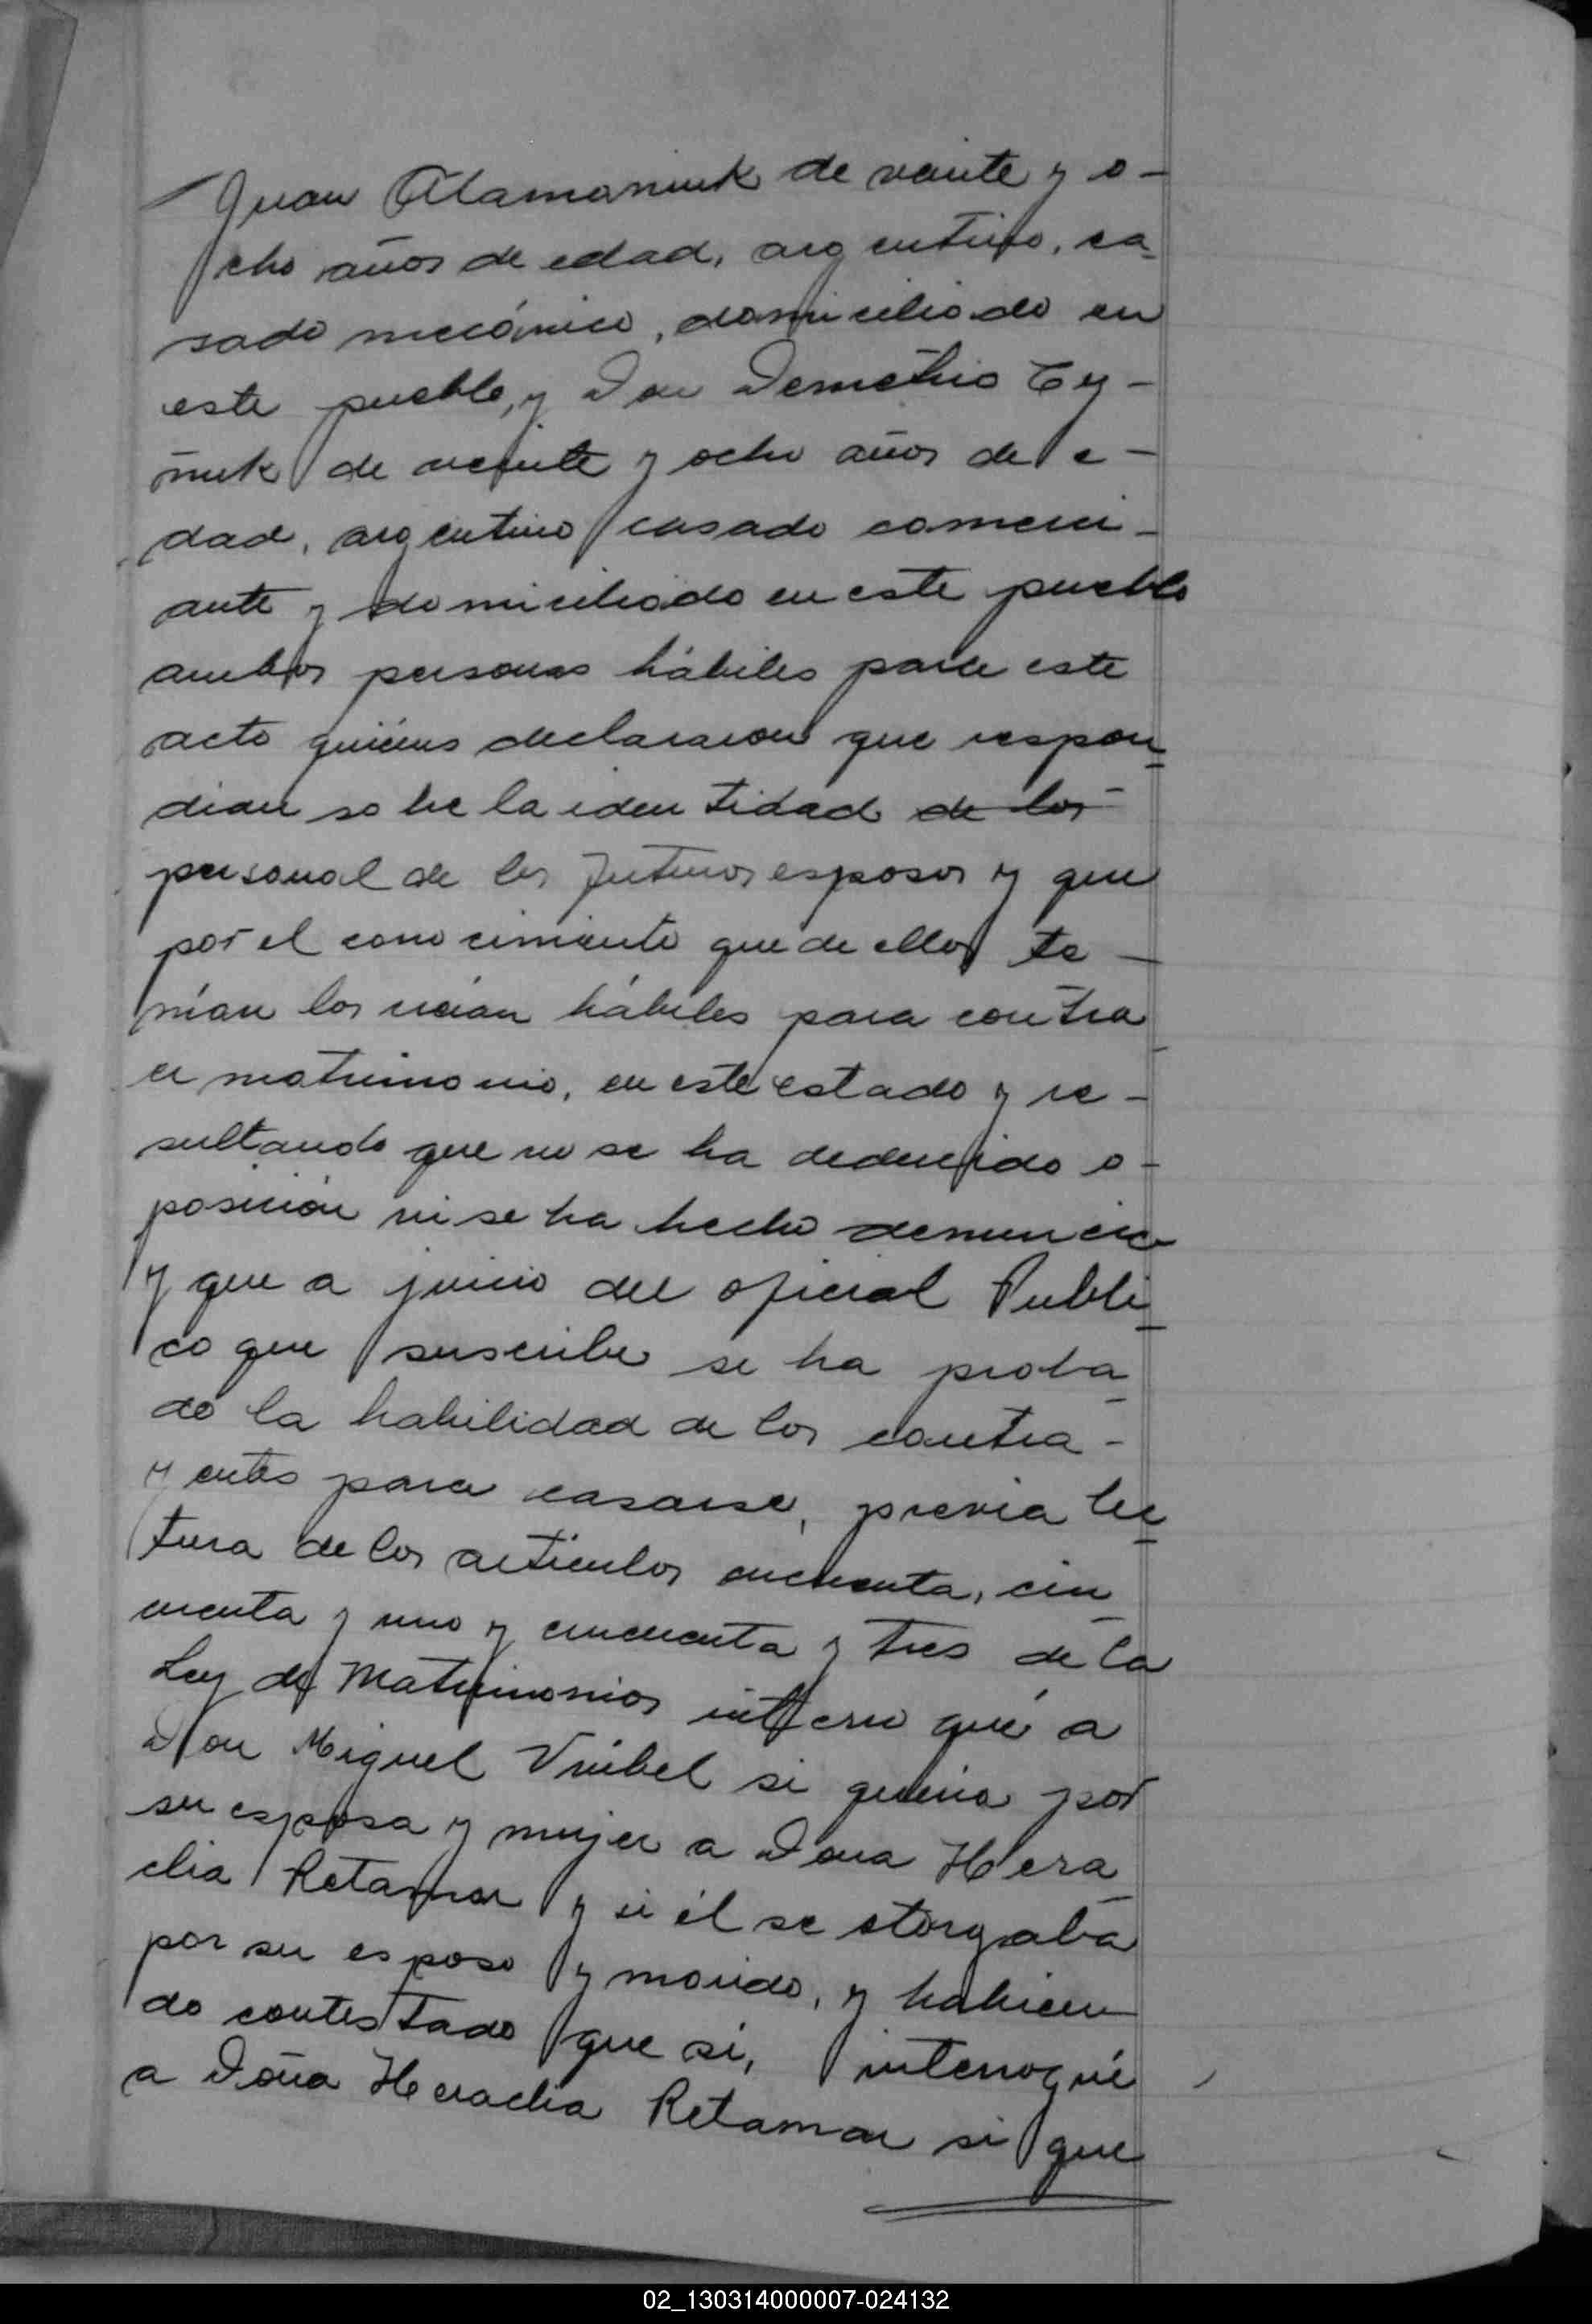 Juan Atamaniuk de veinte y o-
cho años de edad, argentino, ca-
sado mecánico, domiciliado en
este pueblo, y Don Demetrio Cy-
ñuk de veinte y ocho años de e-
dad, argentino casado comerci-
ante y domiciliado en este pueblo
ambos personas hábiles para este
acto quiénes declararon que respon-
dian sobre la identidad de los
personal de los futuros esposos y que
por el conocimiento que de ellos te-
nían los creían hábiles para contra
er matrimonio, en este estado y re-
sultando que no se ha deducido o-
posición ni se ha hecho denuncia
y que a juicio del oficial Publi-
co que suscribe se ha proba-
do la habilidad de los contra-
yentes para casarse, previa lec-
tura de los artículos cincuenta, cin-
cuenta y uno y cincuenta y tres de la
Ley de Matrimonios interro qué a
Don Miguel si quería por
su esposa y mujer a Dona Hera-
clia Retamar y si él se otorgaba
por su esposo y marido, y habien-
do contestado que si, interrogué
a Doña Heraclia Retamar si que
02_130314000007-024132